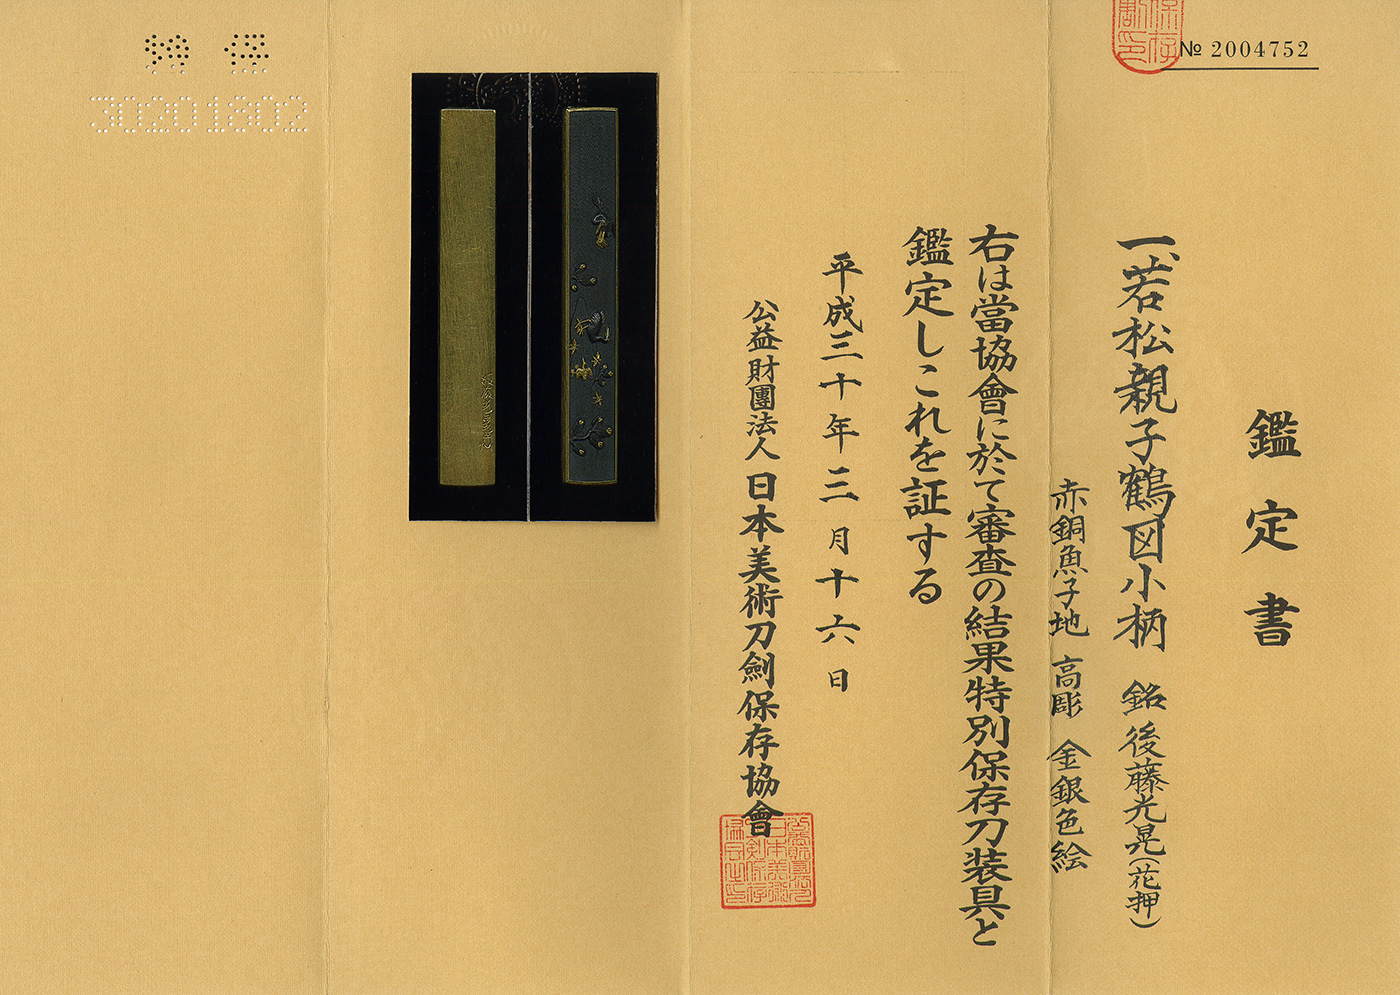 № 2004752
鑑定書
一、若松親子鶴図小柄 銘 後藤光晃(花押)
赤銅魚子地 高彫 金銀色絵
右は當協會に於て審査の結果特別保存刀装具と
鑑定しこれを証する
平成三十年三月十六日
公益財團法人 日本美術刀劍保存協會
30201802